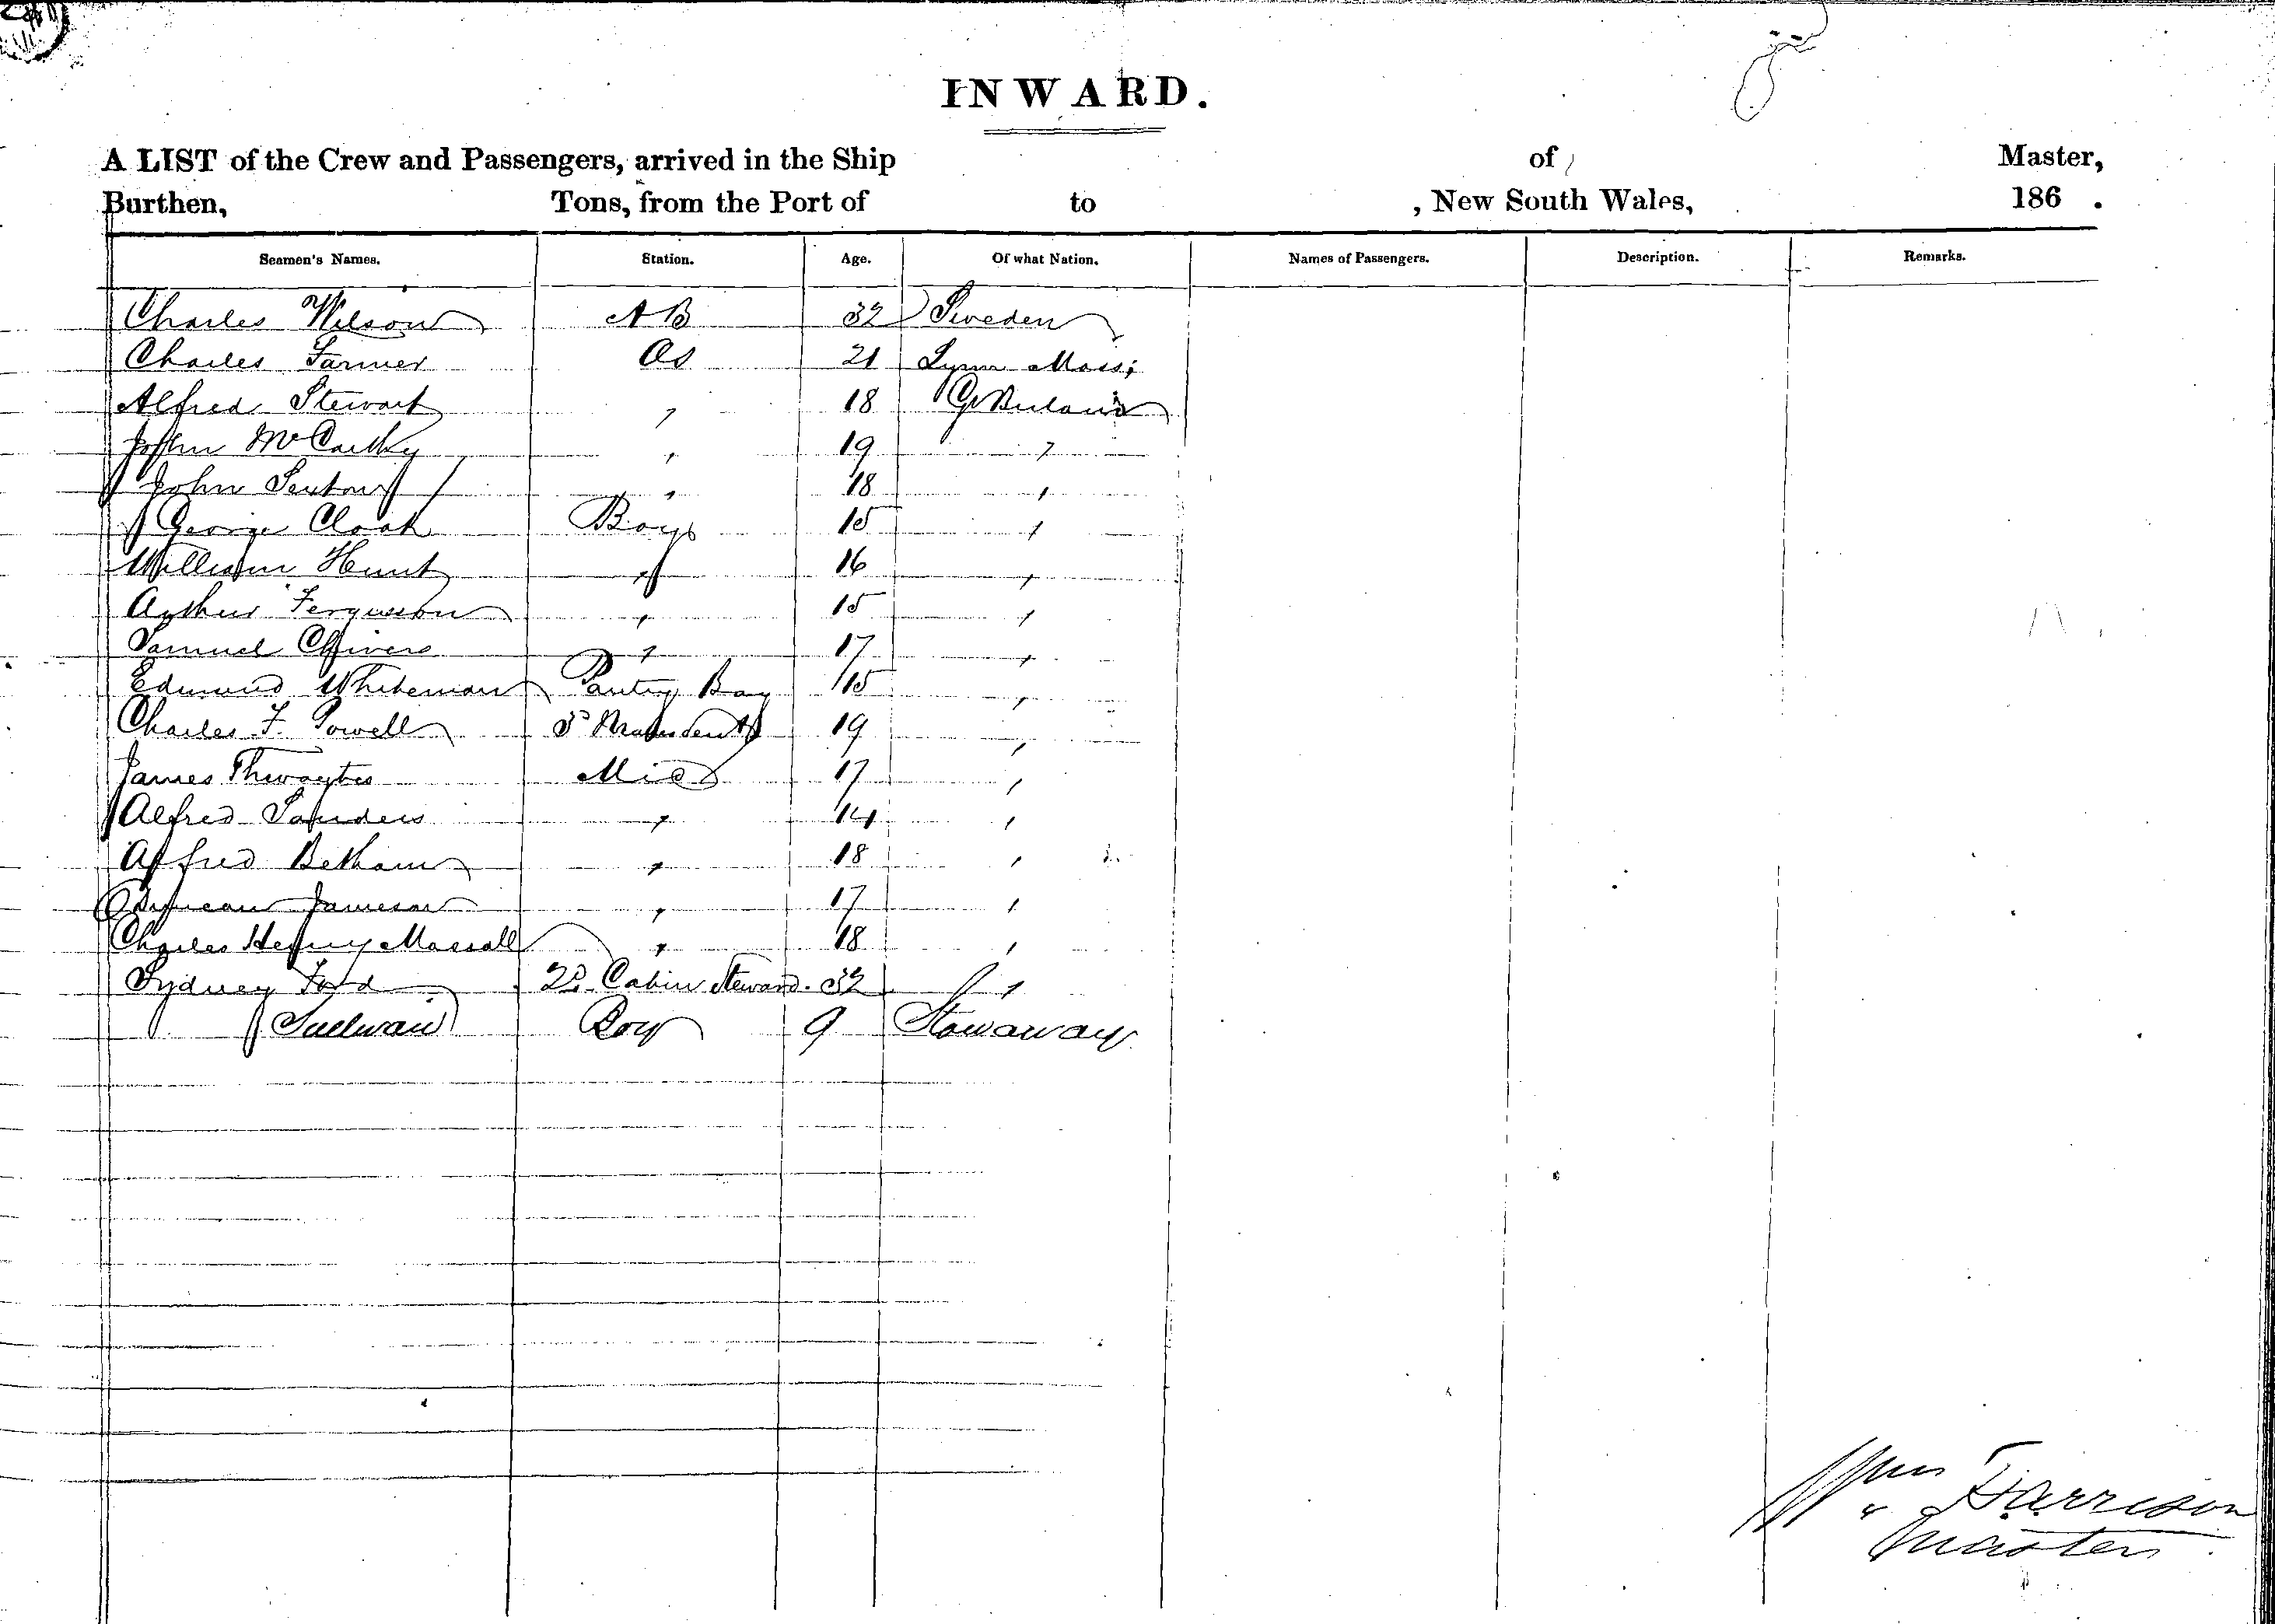 INWARD.
A LIST of the Crew and Passengers, arrived in the Ship of Master,
Burthen, Tons, from the Port of to , New South Wales, 186 .
Seamen's Names. Station. Age. Of what Nation. Names of Passengers. Description. Remarks.
Charles Wilson AB 32 Sweden
Charles Farmer Os 21 Lynn Mass;
Alfred Stewart " 18 Gt Britain
John McCarthy " 19 "
John Sexton " 18 "
George Cloak Boys 15 "
William Hunt " 16 "
Arthur Fergusson " 15 "
Samuel Chivers " 17 "
Edmund Whiteman Pantry Boy 15 "
Charles F. Powell 3d 19 "
James Thwaytes Mid 17 "
Alfred Sanders " 14 "
Alfred Betham " 18 "
Duncan Jameson " 17 "
Charles Henry " 18 "
Sydney Ford 2d Cabin Steward 32 "
Sullivan Boy 9 Stowaway
Wm Harrison
Master